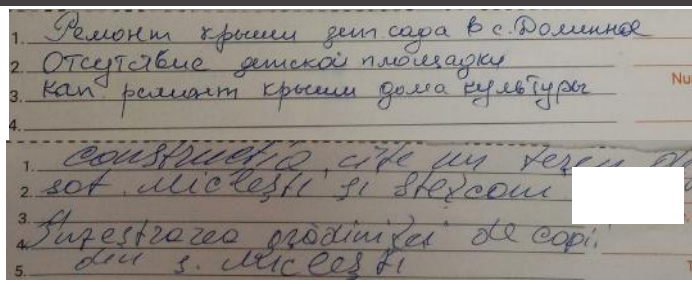 1. Ремонт крыши дет. сада в с. Долинное
2. Отсутствие детской площадки
Nu
3. Кап. ремонт крыши дома культуры
4.
1. constructia, cîte un teren de
2. sat. Miclești și Stețcani
3.
4. Înzestrarea grădiniței de copii
5. din s. Miclești